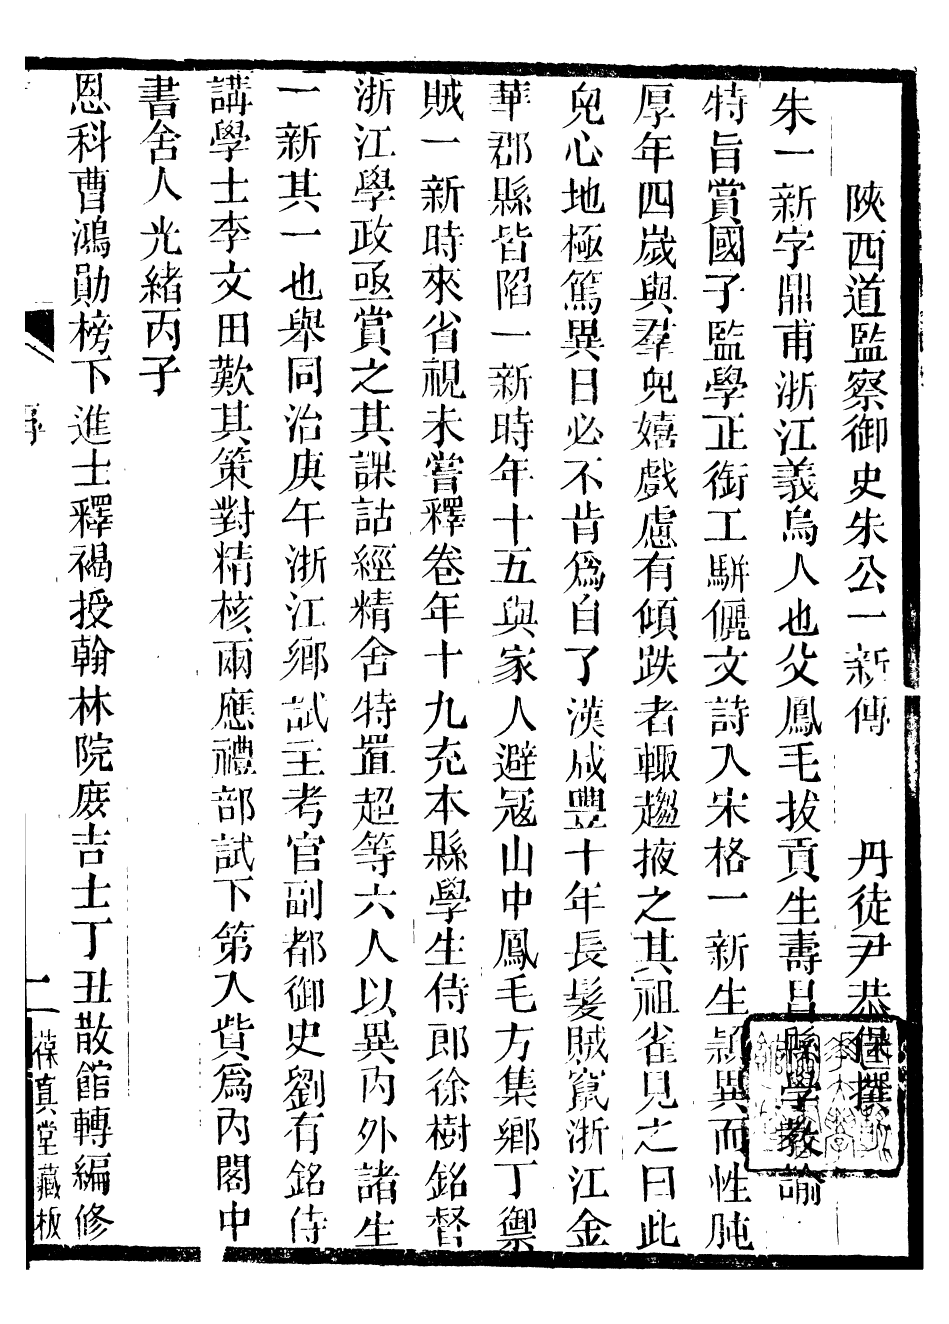 陝西道監察御史朱公一新傳　丹徒尹恭保撰
朱一新字鼎甫浙江義烏人也父鳳毛拔貢生壽昌縣學教諭
特旨賞國子監學正銜工駢儷文詩入宋格一新生頴異而性肫
厚年四歲與羣兒嬉戲慮有傾跌者輙趨掖之其祖雀見之曰此
兒心地極篤異日必不肯爲自了漢咸豐十年長髮賊竄浙江金
華郡縣皆陷一新時年十五與家人避冦山中鳳毛方集鄉丁禦
賊一新時來省視未嘗釋卷年十九充本縣學生侍郎徐樹銘督
浙江學政亟賞之其課詁經精舍特置超等六人以異內外諸生
一新其一也舉同治庚午浙江鄉試主考官副都御史劉有銘侍
講學士李文田歎其策對精核兩應禮部試下第入貲爲內閣中
書舍人光緒丙子
恩科曹鴻勛榜下進士釋褐授翰林院庶吉士丁丑散館轉編修
序
二
葆真堂藏板